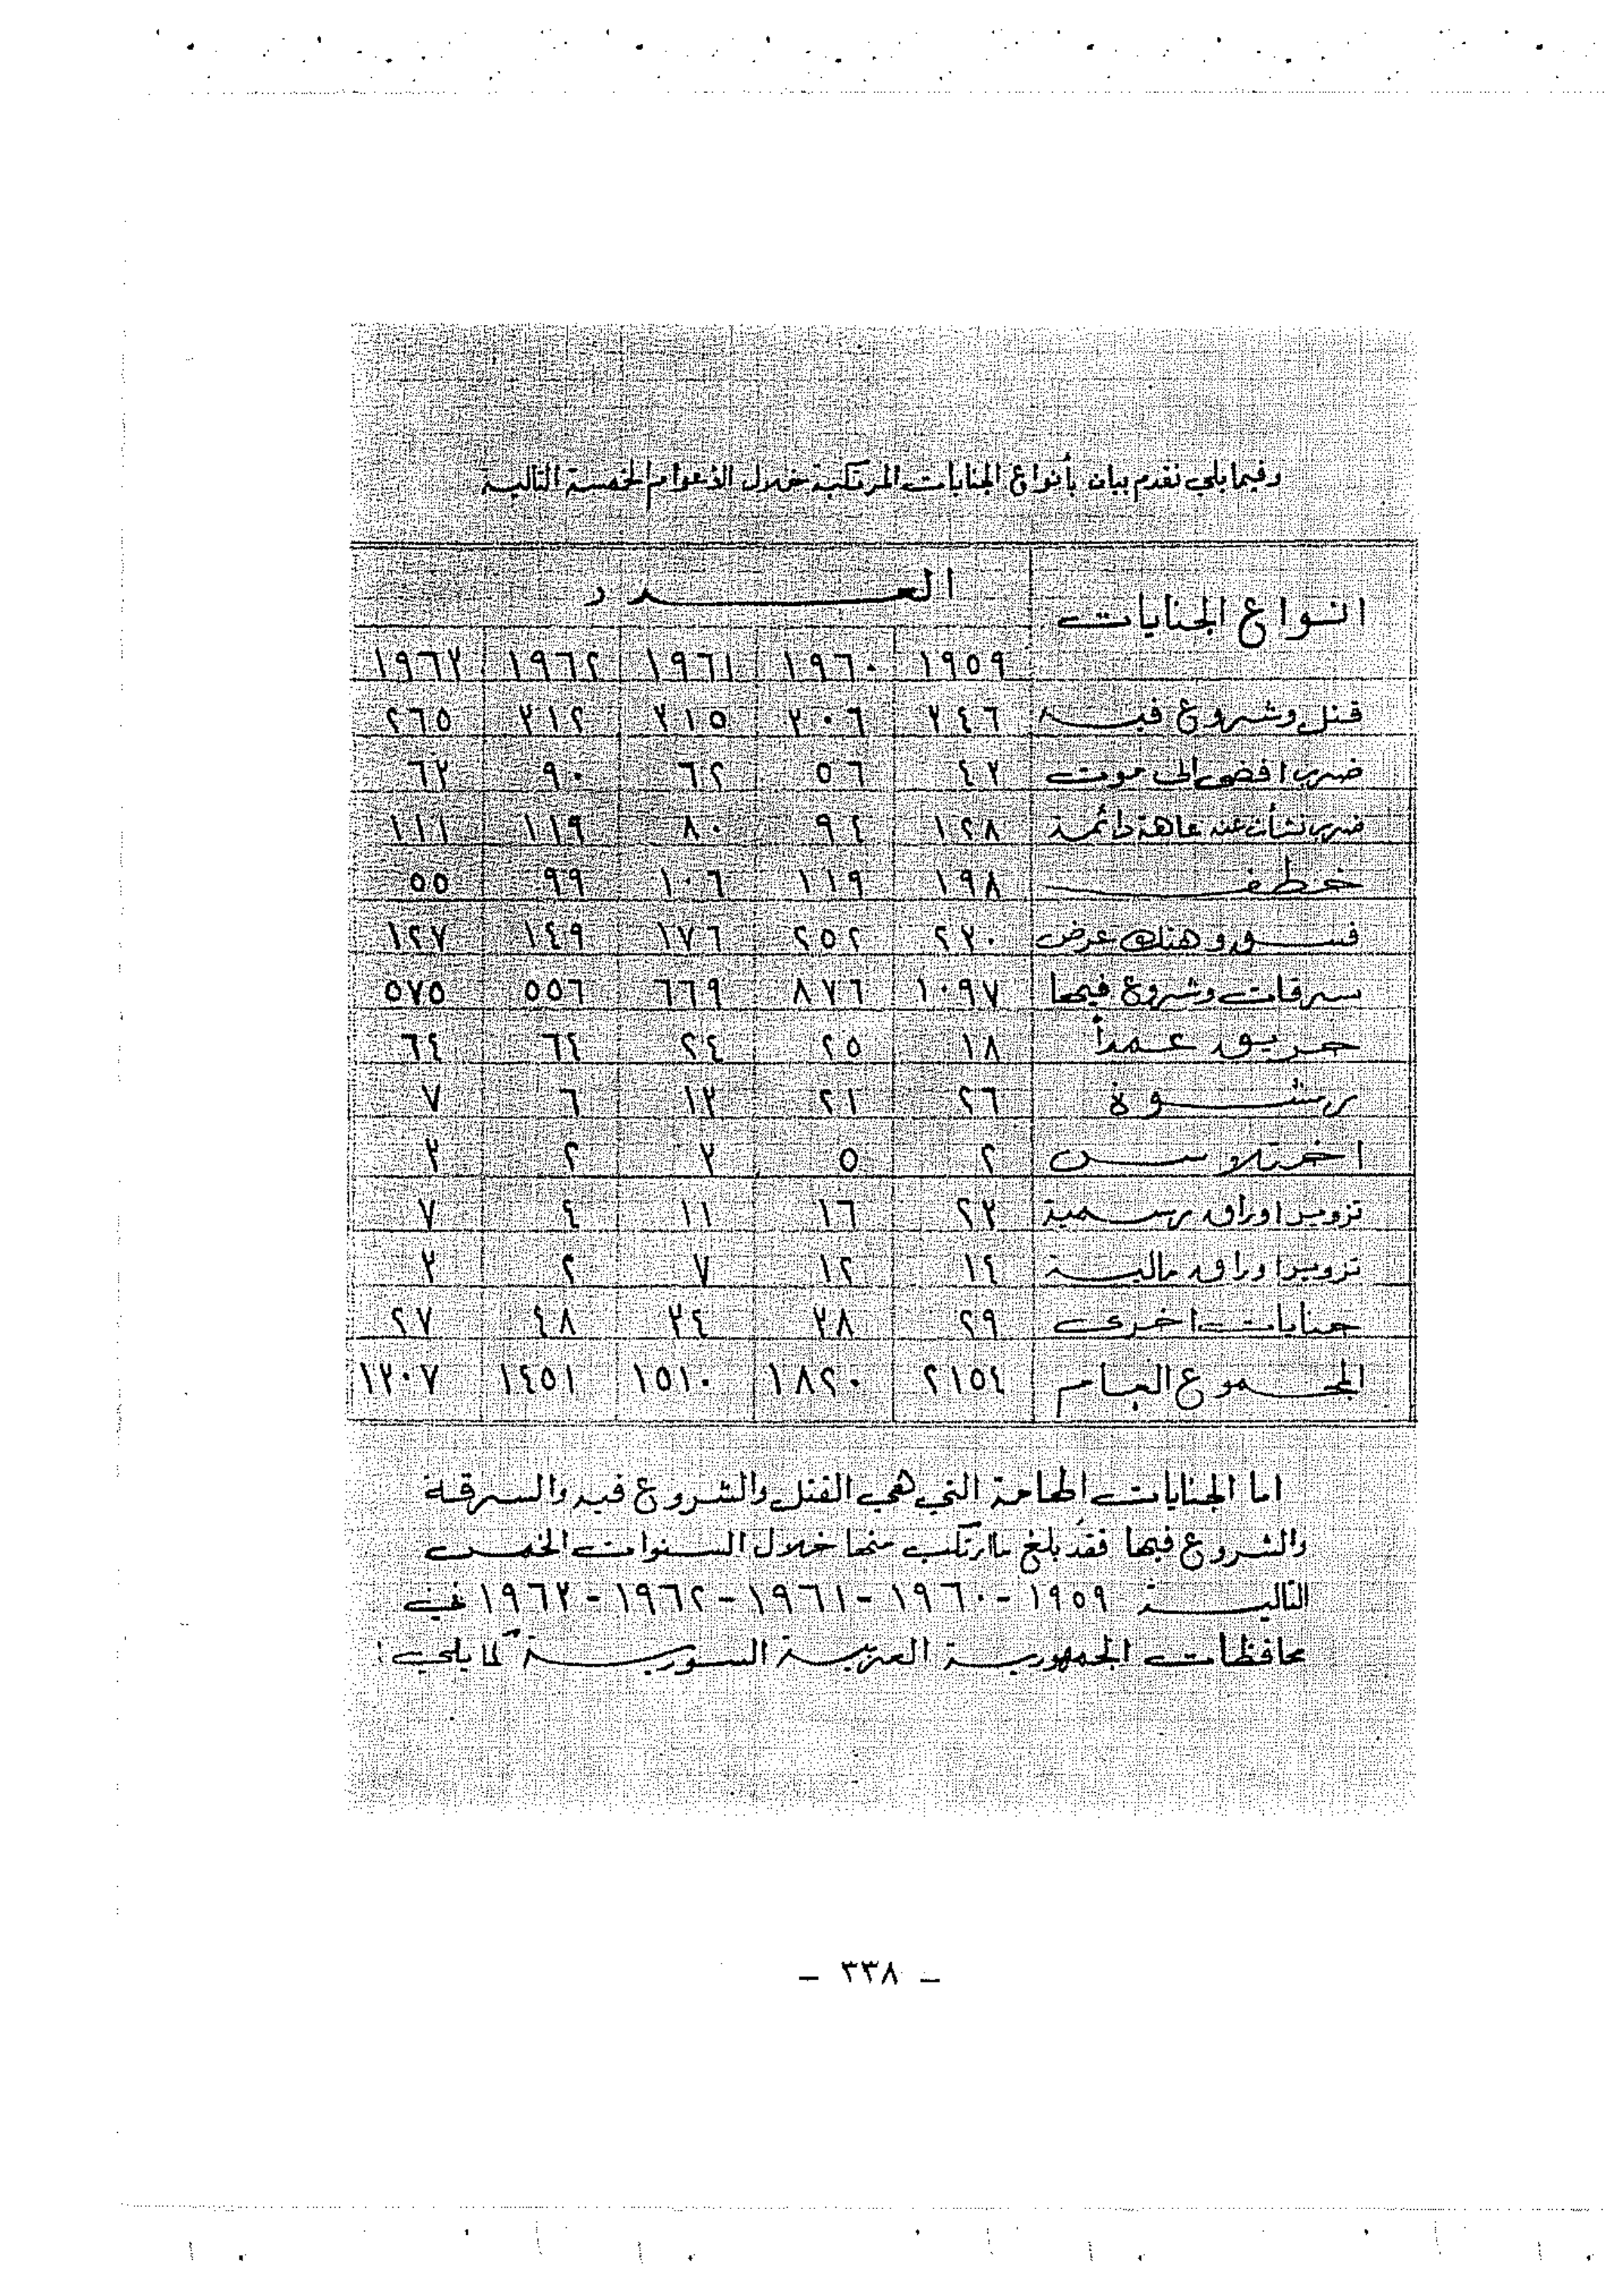 وفيما يلي نقدم بيان بأنواع الجنايات المرتكبة خلال الأعوام الخمسة التالية
انواع الجنايات العدد
١٩٥٩ ١٩٦٠ ١٩٦١ ١٩٦٢ ١٩٦٣
قتل وشروع فيه ٣٤٦ ٣٠٦ ٣١٥ ٣١٢ ٢٦٥
ضرب افضى الى موت ٤٣ ٥٦ ٦٢ ٩٠ ٦٣
ضرب نشأت عنه عاهة دائمة ١٢٨ ٩٤ ٨٠ ١١٩ ١١١
خطف ١٩٨ ١١٩ ١٠٦ ٩٩ ٥٥
فسق وهتك عرض ٢٣٠ ٢٥٢ ١٧٦ ١٤٩ ١٢٧
سرقات وشروع فيها ١٠٩٧ ٨٧٦ ٦٦٩ ٥٥٦ ٥٧٥
حريق عمداً ١٨ ٢٥ ٢٤ ٦٤ ٦٤
رشوة ٢٦ ٢١ ١٣ ٦ ٧
اختلاس ٢ ٥ ٣ ٢ ٣
تزوير اوراق رسمية ٢٣ ١٦ ١١ ٤ ٧
تزوير اوراق مالية ١٤ ١٢ ٧ ٢ ٣
جنايات اخرى ٢٩ ٣٨ ٣٤ ٤٨ ٢٧
المجموع العام ٢١٥٤ ١٨٢٠ ١٥١٠ ١٤٥١ ١٣٠٧
اما الجنايات الهامة التي هي القتل والشروع فيه والسرقة
والشروع فيها فقد بلغ ما ارتكب منها خلال السنوات الخمس
التالية ١٩٥٩ - ١٩٦٠ - ١٩٦١ - ١٩٦٢ - ١٩٦٣ في
محافظات الجمهورية العربية السورية كما يلي :
- ٣٣٨ -